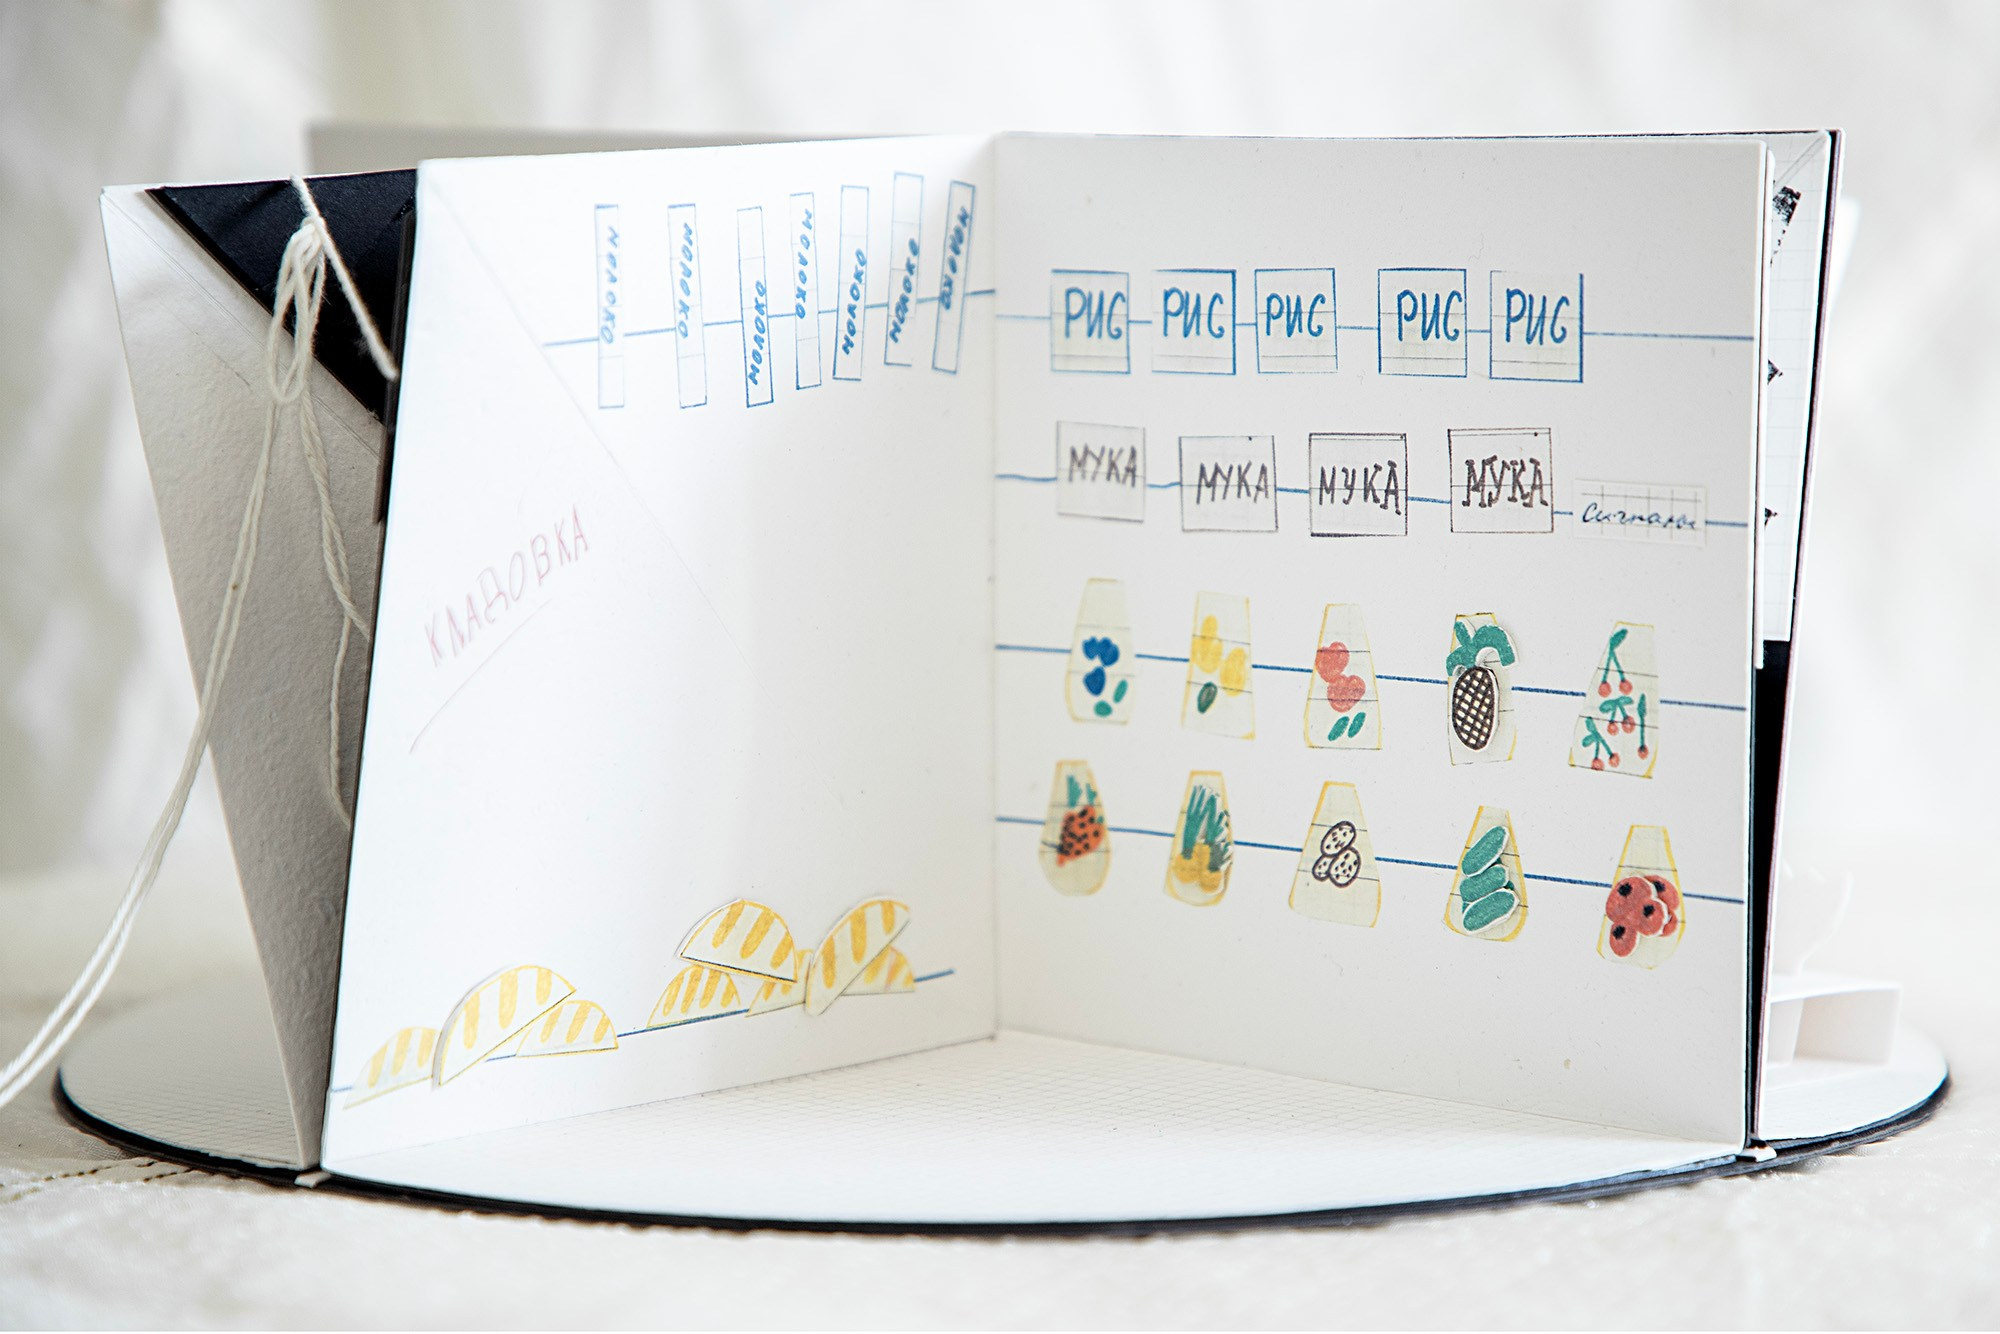 МОЛОКО МОЛОКО МОЛОКО МОЛОКО МОЛОКО МОЛОКО МОЛОКО
КЛАДОВКА
РИС РИС РИС РИС РИС
МУКА МУКА МУКА МУКА